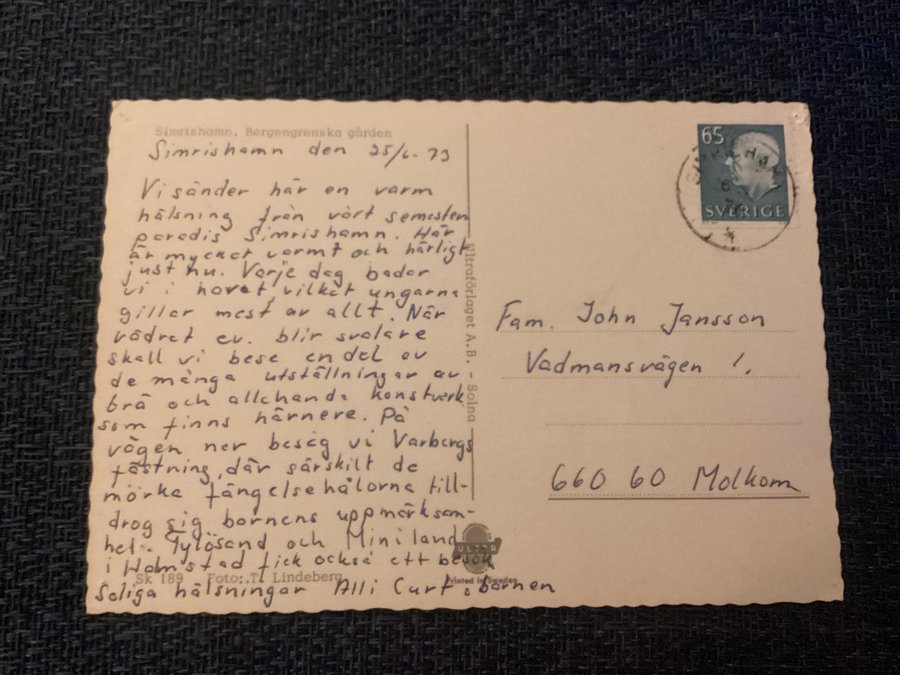 Simrishamn. Bergengrenska gården
Simrishamn den 25/6-73
Vi sänder här en varm
hälsning från vårt semester
paradis Simrishamn. Här
är mycket varmt och härligt
just nu. Varje dag badar
vi i havet, vilket ungarna
gillar mest av allt. När
vädret ev. blir svalare
skall vi bese en del av
de många utställningar av
brä och allehanda konstverk
som finns härnere. På
vägen ner beség vi Varbergs
fästning, där särskilt de
mörka fängelsehålorna till-
drog sig barnens uppmärksam-
het. Tylösand och Miniland
i Halmstad fick också ett besök
Soliga hälsningar Alli Curt o barnen
Sk 189 Foto: T. Lindeberg
Ultraförlaget A.B. - Solna
ULTRA
Printed in Sweden
65
SVERIGE
SIMRISHAMN
Fam. John Jansson
Vadmansvägen 1.
660 60 Molkom